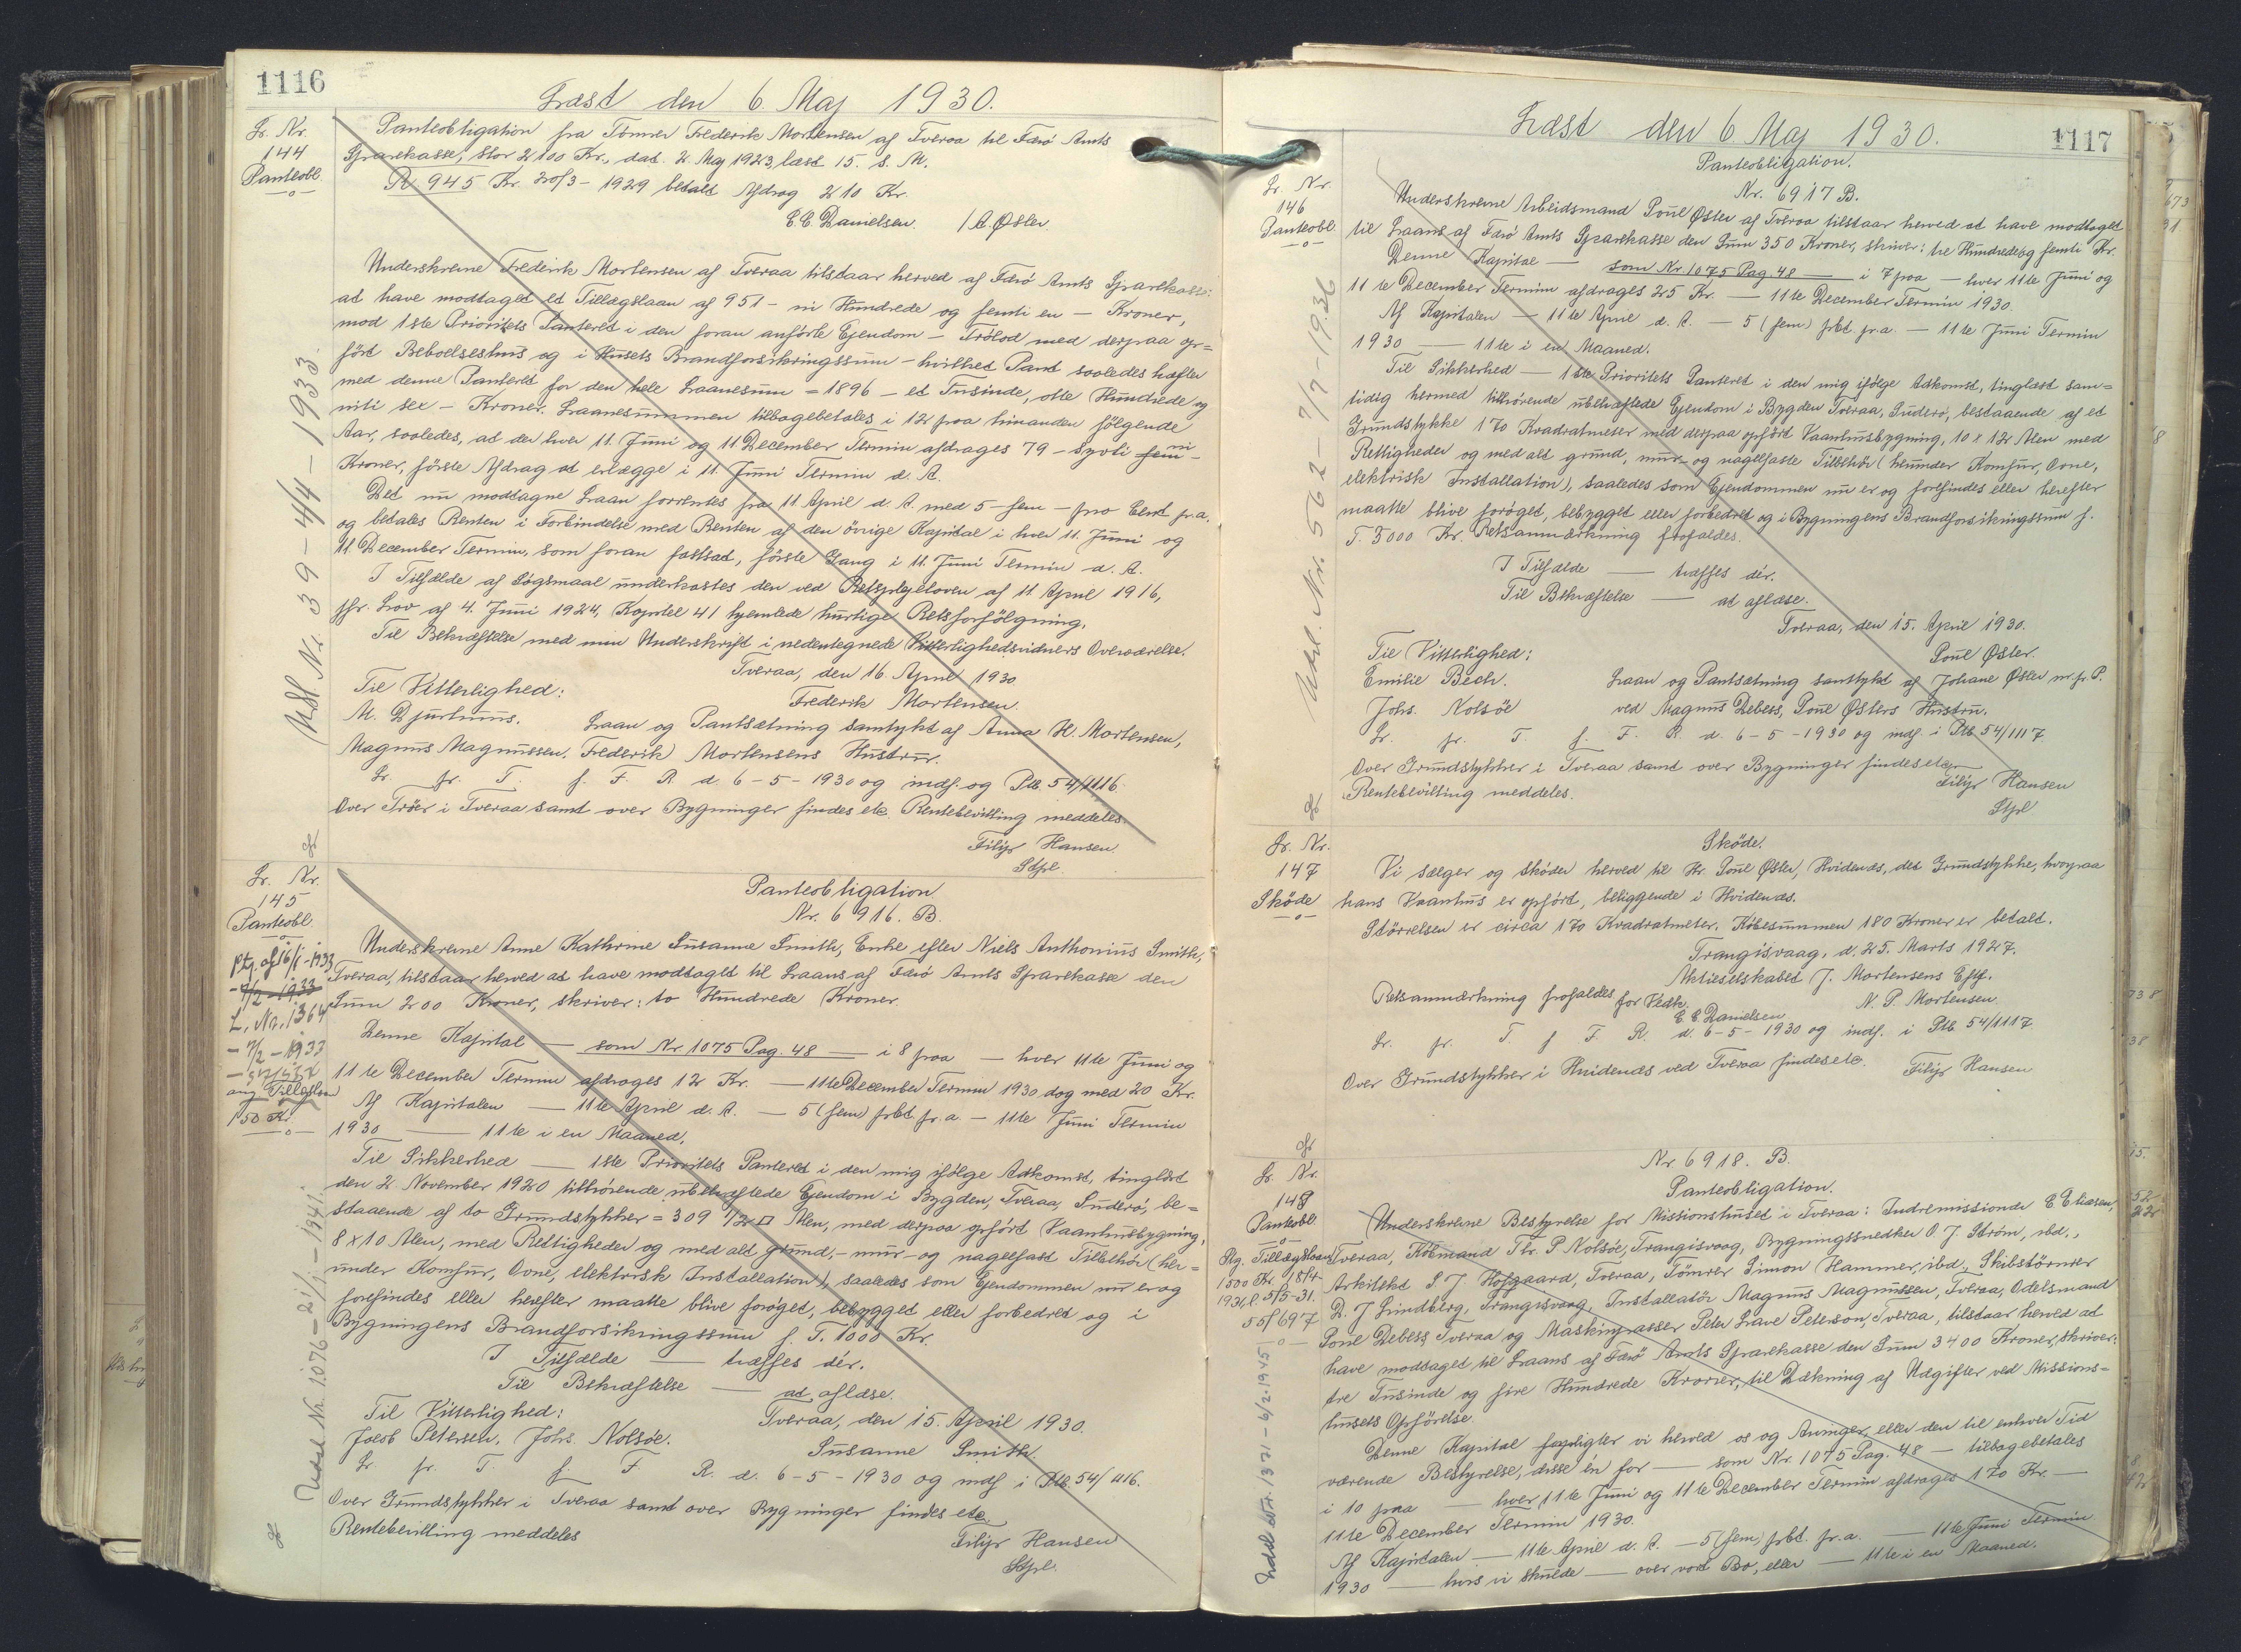 1116
Læst den 6. Maj 1930.
Lr. Nr.
144
Panteobl.
Panteobligation fra Tömrer Frederik Mortensen af Tveraa til Færö Amts
Sparekasse, stor 2100 Kr., dat. 2 Maj 1923, læst 15. s. M.
R 945 Kr. 20/3-1929 betalt Afdrag 210 Kr.
E E Danielsen. / A. Øster.
Underskrevne Frederik Mortensen af Tveraa tilstaar herved af Færö Amts Sparekasse
at have modtaget et Tillægslaan af 951 - ni Hundrede og femti en - Kroner,
mod 1ste Prioritets Panteret i den foran anförte Ejendom - Trölod med derpaa op=
fört Beboelseshus og i Husets Brandforsikringssum - hvilket Pant saaledes hæfter
med denne Panteret for den hele Laanesum = 1896 - et Tusinde, otte Hundrede og
niti sex - Kroner. Laanesummen tilbagebetales i 12 paa hinanden fölgende
Aar, saaledes, at der hver 11. Juni og 11 December Termin afdrages 79 - syvti fem ni -
Kroner, förste Afdrag at erlægge i 11. Juni Termin d. A.
Det nu modtagne Laan forrentes fra 11 April d. A. med 5 - fem - pro Cent p.a.
og betales Renten i Forbindelse med Renten af den övrige Kapital i hver 11. Juni og
11. December Termin, som foran fastsat, förste Gang i 11. Juni Termin d. A.
I Tilfælde af Sögsmaal underkastes den ved Retsplejeloven af 11 April 1916,
jfr. Lov af 4. Juni 1924, Kapitel 41 hjemlede hurtige Retsforfölgning.
Til Bekræftelse med min Underskrift i nedentegnede Vitterlighedsvidners Overværelse.
Tveraa, den 16. April 1930
Til Vitterlighed: Frederik Mortensen.
M. Djurhuus. Laan og Pantsætning samtykt af Anna H. Mortensen,
Magnus Magnussen. Frederik Mortensens Hustru.
Lr. pr. T. f. F. R. d. 6-5-1930 og indf. og Ptb. 54/1116.
Over Tröer i Tveraa samt over Bygninger findes etc. Rentebevilling meddeles.
Filip Hansen.
Stpl.
Udsl Nr 39 - 4/4 - 1933.
Lr. Nr.
145
Panteobl.
Ptg. af 16/1-1933
- 7/2-1933
L. Nr. 1364
- 7/2-1933
ang Tillægslaan
150 Kr.
Panteobligation
Nr. 6916. B.
Underskrevne Anne Kathrine Susanne Smith, Enke efter Niels Anthonius Smith,
Tveraa, tilstaar herved at have modtaget til Laans af Færö Amts Sparekasse den
Sum 200 Kroner, skriver: to Hundrede Kroner.
Denne Kapital — som Nr 1075 Pag. 48 — i 8 paa — hver 11te Juni og
11te December Termin afdrages 12 Kr. — 11te December Termin 1930 dog med 20 Kr.
Af Kapitalen — 11te April d. A. — 5 (fem) prCt. pr. a. — 11te Juni Termin
1930 — 11te i en Maaned.
Til Sikkerhed — 1ste Prioritets Panteret i den mig ifölge Adkomst, tinglæst
den 2. November 1920 tilhörende ubehæftede Ejendom i Bygden, Tveraa, Suderö, be=
staaende af to Grundstykker = 309 1/2 □ Alen, med derpaa opfört Vaanhusbygning,
8 x 10 Alen, med Rettigheder og med alt grund,- mur- og nagelfast Tilbehör (her=
under Komfur, Ovne, elektrisk Installation), saaledes som Ejendommen nu er og
forefindes eller herefter maatte blive foröget, bebygget eller forbedret og i
Bygningens Brandforsikringssum f. T. 1000 Kr.
I Tilfælde — træffes dér.
Til Bekræftelse — at aflæse.
Til Vitterlighed: Tveraa, den 15. April 1930.
Jacob Petersen. Johs. Nolsöe. Susanne Smith.
Lr. pr. T. f. F. R. d. 6-5-1930 og indf i Ptb. 54/1116.
Over Grundstykker i Tveraa samt over Bygninger findes etc.
Rentebevilling meddeles Filip Hansen
Stpl.
Udsl. Nr. 1076 - 21/1 - 1941.
Læst den 6 Maj 1930.
1117
Lr. Nr.
146
Panteobl
Panteobligation.
Nr. 6917 B.
Underskrevne Arbeidsmand Poul Øster af Tveraa tilstaar herved at have modtaget
til Laans af Færö Amts Sparekasse den Sum 350 Kroner, skriver: tre Hundrede og femti Kr.
Denne Kapital — som Nr 1075 Pag. 48 — i 7 paa — hver 11te Juni og
11te December Termin afdrages 25 Kr. — 11te December Termin 1930.
Af Kapitalen — 11te April d. A. — 5 (fem) prCt. pr. a. — 11te Juni Termin
1930 — 11te i en Maaned.
Til Sikkerhed — 1ste Prioritets Panteret i den mig ifölge Adkomst, tinglæst sam=
tidig hermed tilhörende ubehæftede Ejendom i Bygden Tveraa, Suderö, bestaaende af et
Grundstykke 170 Kvadratmeter med derpaa opfört Vaanhusbygning, 10 x 12 Alen med
Rettigheder og med alt grund, mur- og nagelfaste Tilbehör (herunder Komfur, Ovne,
elektrisk Installation), saaledes som Ejendommen nu er og forefindes eller herefter
maatte blive foröget, bebygget eller forbedret og i Bygningens Brandforsikringssum f.
T. 3000 Kr. Retsanmærkning frafaldes.
I Tilfælde — træffes dér.
Til Bekræftelse — at aflæse.
Tveraa, den 15. April 1930.
Til Vitterlighed: Poul Øster.
Emilie Bech. Laan og Pantsætning samtykt af Johane Øster m. f. P.
Johs. Nolsöe ved Magnus Debess, Poul Østers Hustru.
Lr. pr. T. f. F. R. d. 6-5-1930 og indf. i Ptb 54/1117
Over Grundstykker i Tveraa samt over Bygninger findes etc.
Rentebevilling meddeles. Filip Hansen
Stpl
Udsl. Nr. 562 - 7/7 - 1936
Lr. Nr.
147
Sköde
Sköde.
Vi sælger og sköder herved til Hr. Poul Øster, Hvidenæs, det Grundstykke, hvorpaa
hans Vaanhus er opfört, beliggende i Hvidenæs.
Störrelsen er circa 170 Kvadratmeter. Köbesummen 180 Kroner er betalt.
Trangisvaag, d. 25. Marts 1927.
Aktieselskabet J. Mortensens Eftf.
Retsanmærkning frafaldes for Vedk. N. P. Mortensen
E E Danielsen
Lr. pr. T f F. R. d. 6-5-1930 og indf. i Ptb. 54/1117.
Over Grundstykker i Hvidenæs ved Tveraa findes etc. Filip Hansen
Lr. Nr.
148
Panteobl.
Ptg. Tillægslaan
1500 Kr. 15/4-
1931, l. 5/5-31.
55/697
Nr. 6918. B.
Panteobligation.
Underskrevne Bestyrelse for Missionshuset i Tveraa: Indremissionær E Eliasen,
Tveraa, Köbmand Thr. P. Nolsöe, Trangisvaag, Bygningssnedker O. J. Ström, ibd.,
Arkitekt S. J. Hofgaard, Tveraa, Tömrer Simon Hammer, ibd., Skibstömrer
D. J Lindberg, Trangisvaag, Installatör Magnus Magnussen, Tveraa, Odelsmand
Poul Debess, Tveraa og Maskinpasser Peter Lave Peterson, Tveraa, tilstaar herved at
have modtaget til Laans af Færö Amts Sparekasse den Sum 3400 Kroner, skriver:
tre Tusinde og fire Hundrede Kroner, til Dækning af Udgifter ved Missions=
husets Opförelse.
Denne Kapital forpligter vi herved os og Arvinger, eller den til enhver Tid
værende Bestyrelse, disse én for — som Nr. 1075 Pag. 48 — tilbagebetales
i 10 paa — hver 11te Juni og 11te December Termin afdrages 170 Kr. —
11te December Termin 1930.
Af Kapitalen — 11te April d. A. — 5 (fem) prCt. pr. a. — 11te Juni Termin
1930 — hvis vi skulde — over vort Bo, eller — 11te i en Maaned.
Udsl Nr. 1371 - 6/2-1945